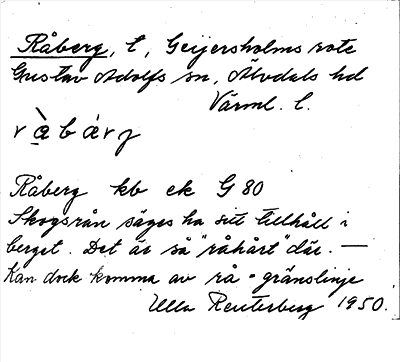 Råberg, t, Geijersholms rote
Gustav Adolfs sn, Älvdals hd
Värml. l.
r å̀ b á r j
Råberg kb ek G 80
Skogsrån säges ha sitt tillhåll i
berget. Det är så "råhårt" där. —
Kan dock komma av rå = gränslinje
Ulla Reuterberg 1950.